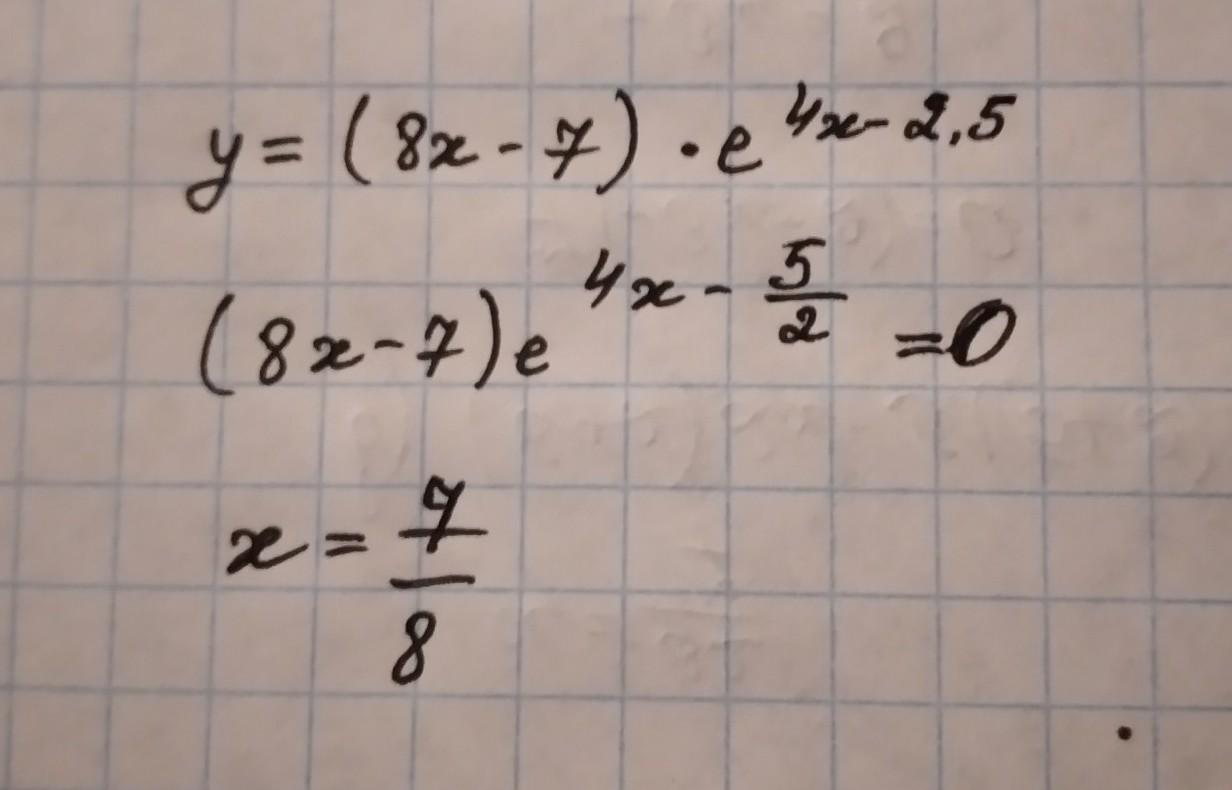 y = (8x - 7) · e^{4x - 2,5}
(8x - 7)e^{4x - \frac{5}{2}} = 0
x = \frac{7}{8}